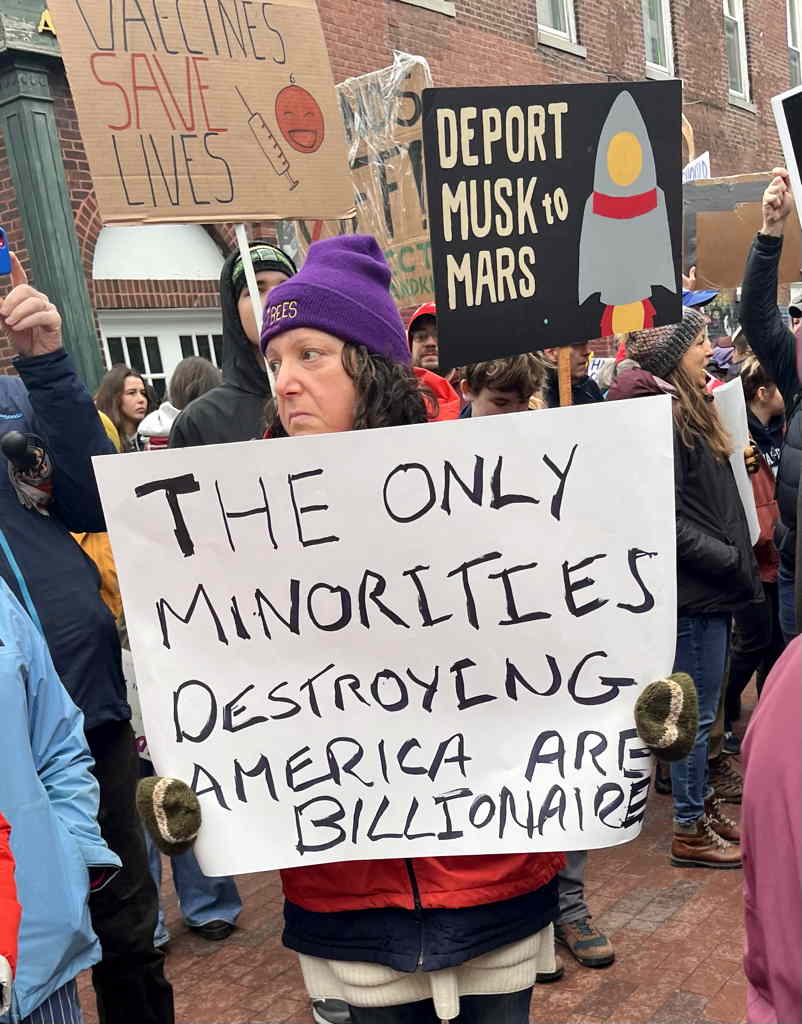 VACCINES
SAVE
LIVES
DEPORT
MUSK to
MARS
BEES
THE ONLY
MINORITIES
DESTROYING
AMERICA ARE
BILLIONAIRE